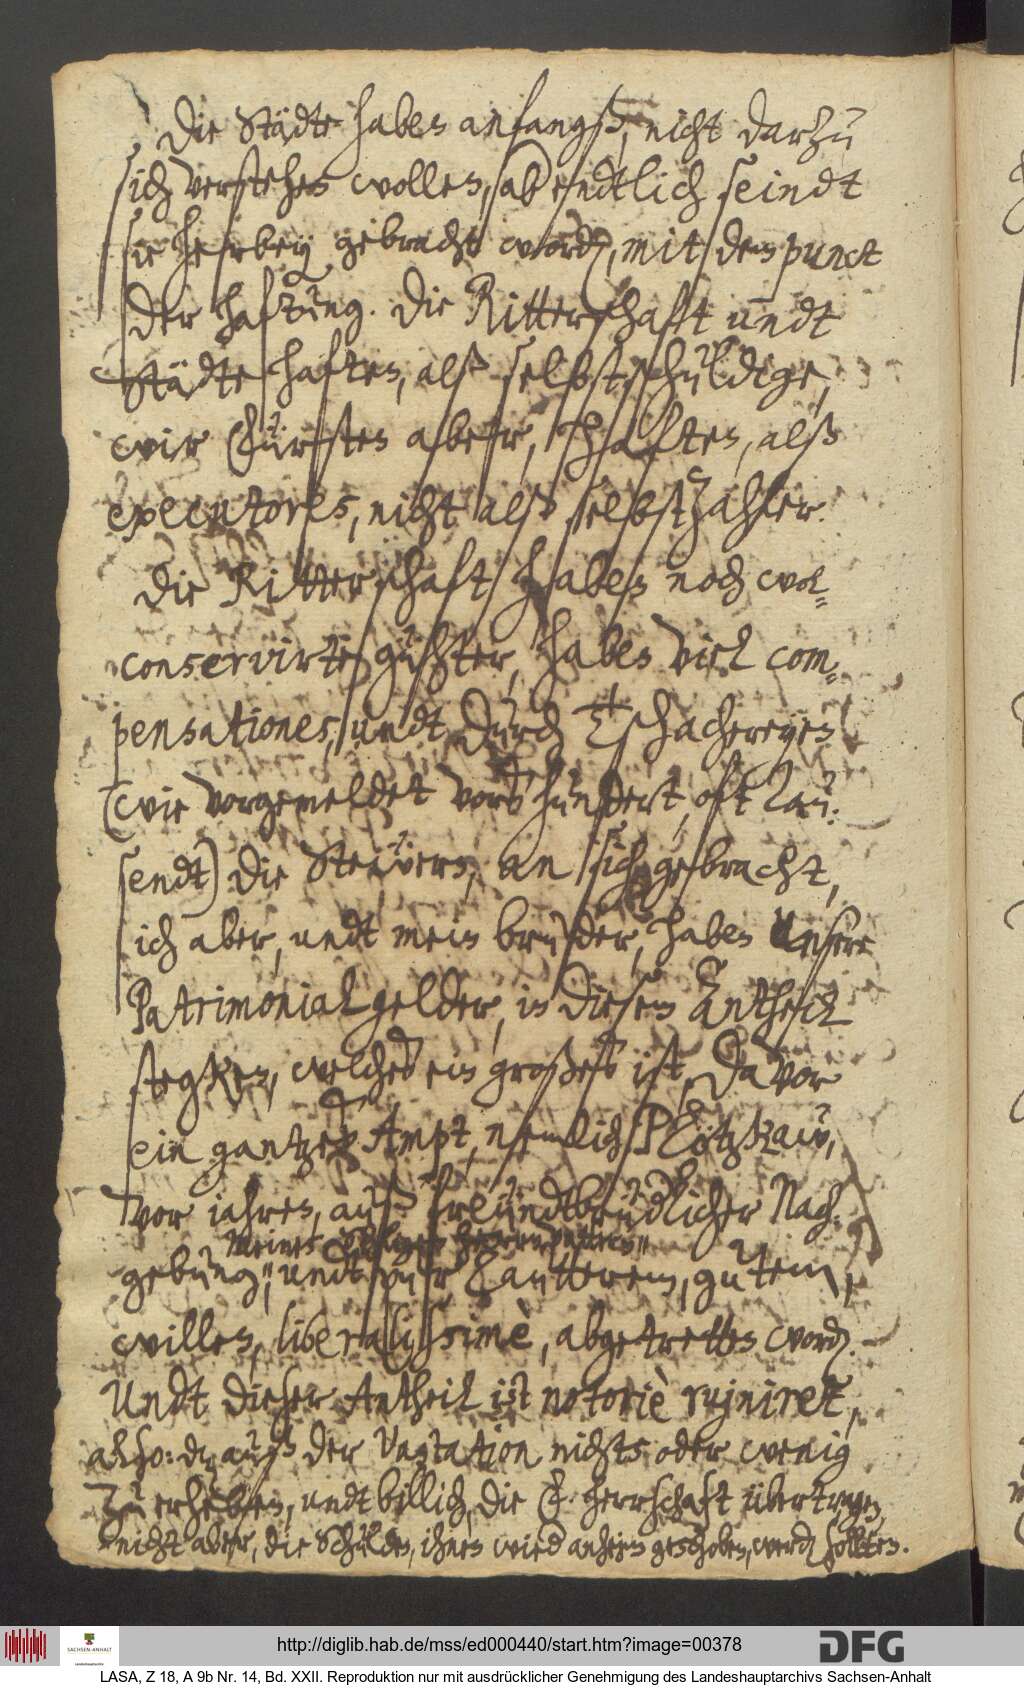 Die Städte haben anfangß, nicht darzu
sich verstehen wollen, aber endtlich seindt
sie herbey gebracht worden, mit dem punct
der haftung. Die Ritterschafft undt
Städte haften, alß selbstschuldige,
wir Fürsten aber, haften, alß
executores, nicht alß selbstzahler.
Die Ritterschaft haben noch wol=
conservirte gühter, haben viel com=
pensationes, undt durch Tschachereyen
(wie vorgemeldet vors hundert, oft tau=
sendt) die Steuern, an sich gebracht,
ich aber, undt mein bruder, haben Unsere
Patrimonialgelder, in diesem Antheil
stegken, welches ein großes ist, Da vor
ein gantzes Ampt, nemlich Plötzkaw,
vor jahren, auß freundtbrüdlicher Nach=
meines Sehligen herrnvatters
gebung, undt pur lautterem, gutem,
willen, liberalissimè, abgetretten word.
Undt dieser Antheil ist notoriè rujniret,
also: dz auß der Vastation nichts oder wenig
zu erheben, undt billich, die F. herrschaft übertragen,
nicht aber, die Schulden, ihnen wied anheim geschoben, werd sollten.
http://diglib.hab.de/mss/ed000440/start.htm?image=00378
SACHSEN-ANHALT
Landeshauptarchiv
DFG
LASA, Z 18, A 9b Nr. 14, Bd. XXII. Reproduktion nur mit ausdrücklicher Genehmigung des Landeshauptarchivs Sachsen-Anhalt